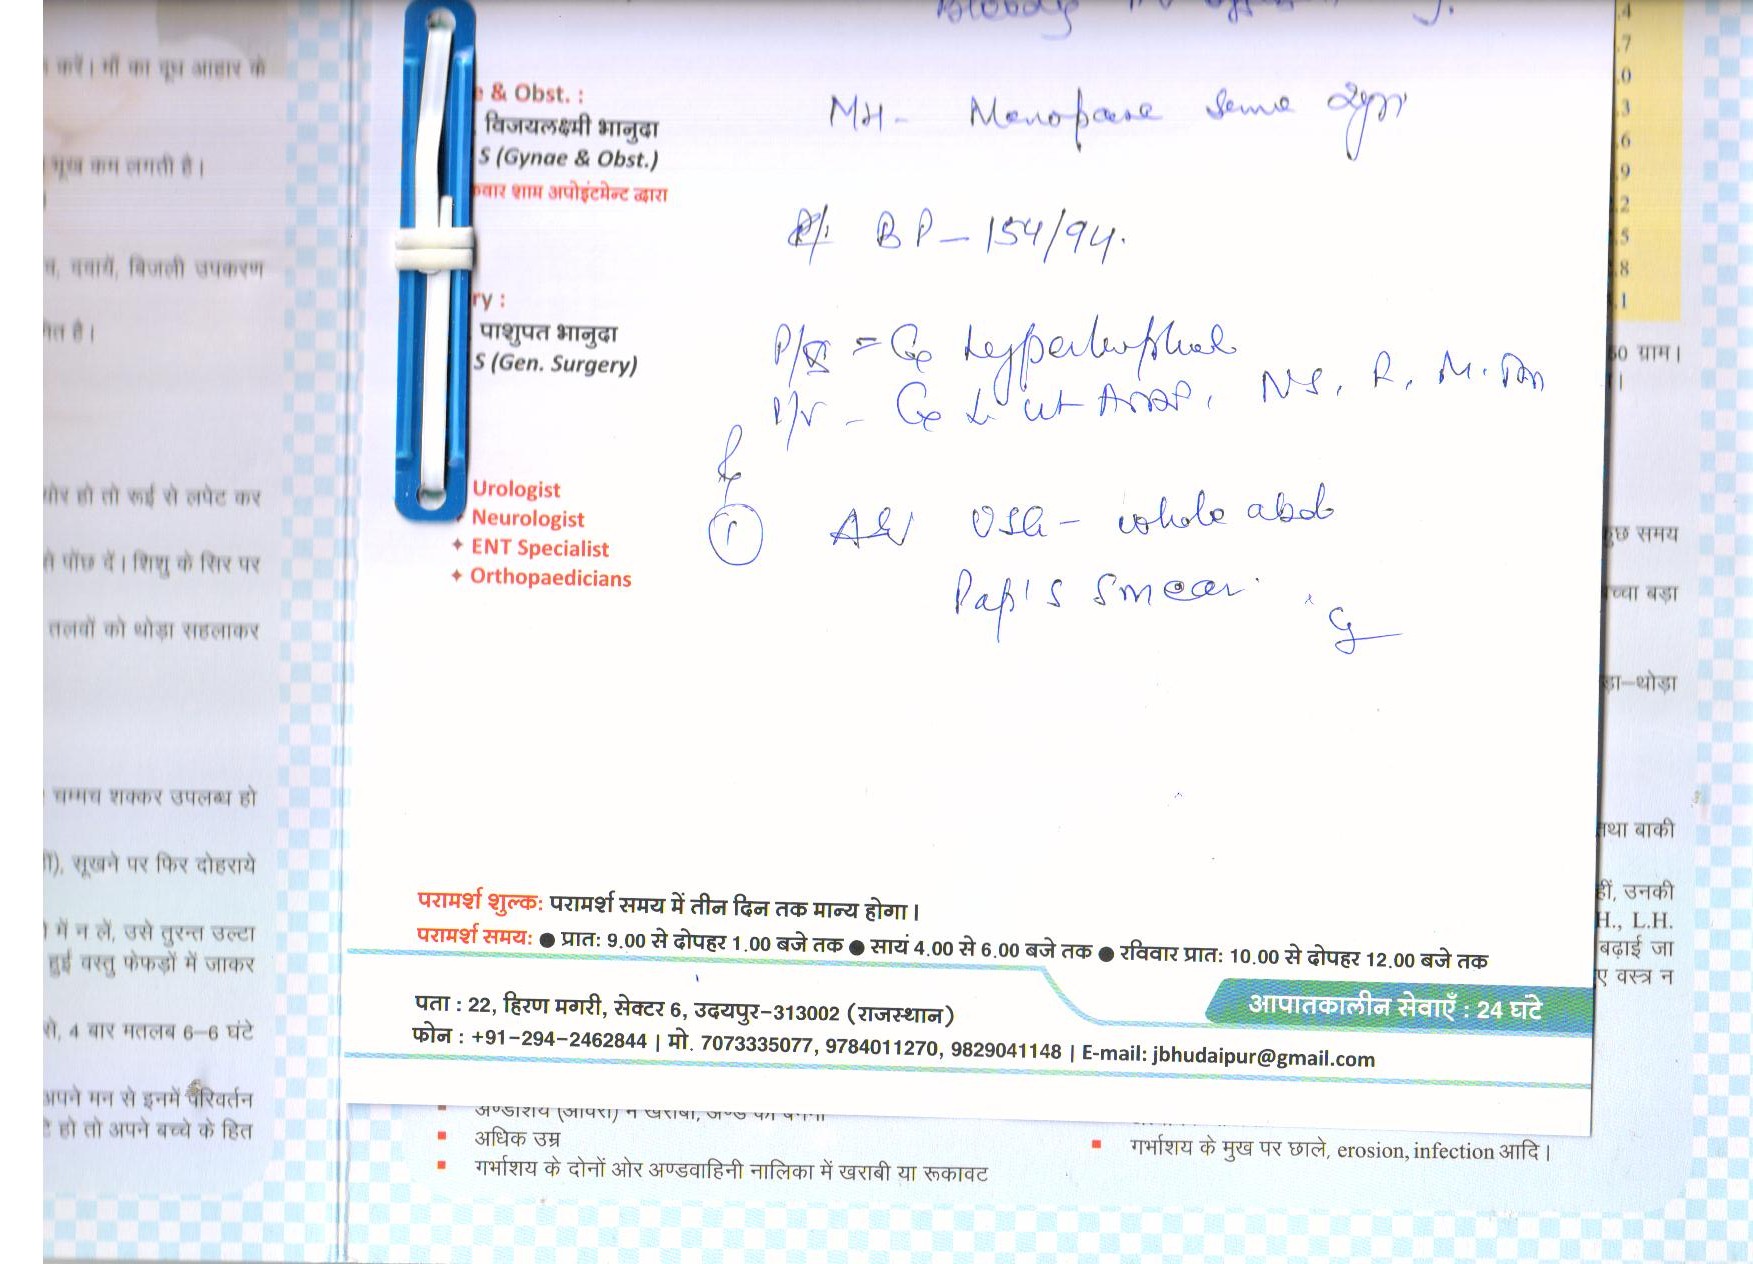 Bloody
करें। माँ का दूध आहार के
भूख कम लगती है।
दवायें, बिजली उपकरण
है।
हो तो रूई से लपेट कर
पोंछ दें। शिशु के सिर पर
तलवों को थोड़ा सहलाकर
चम्मच शक्कर उपलब्ध हो
सूखने पर फिर दोहराये
में न लें, उसे तुरन्त उल्टा
हुई वस्तु फेफड़ों में जाकर
4 बार मतलब 6-6 घंटे
अपने मन से इनमें परिवर्तन
हो तो अपने बच्चे के हित
& Obst. :
विजयलक्ष्मी भानुदा
S (Gynae & Obst.)
वार शाम अपोइंटमेन्ट द्वारा
ry :
पाशुपत भानुदा
S (Gen. Surgery)
Urologist
Neurologist
ENT Specialist
Orthopaedicians
MH - Menopause some
BP - 154/94.
P/S = Cx Hypertrophied
P/V - Cx ut NS, R, M.
Rx
① Adv USG - whole abd
Pap's Smear
परामर्श शुल्क: परामर्श समय में तीन दिन तक मान्य होगा।
परामर्श समय: ● प्रात: 9.00 से दोपहर 1.00 बजे तक ● सायं 4.00 से 6.00 बजे तक ● रविवार प्रात: 10.00 से दोपहर 12.00 बजे तक
पता : 22, हिरण मगरी, सेक्टर 6, उदयपुर-313002 (राजस्थान)
आपातकालीन सेवाएँ : 24 घंटे
फोन : +91-294-2462844 | मो. 7073335077, 9784011270, 9829041148 | E-mail: jbhudaipur@gmail.com
अधिक उम्र
गर्भाशय के दोनों ओर अण्डवाहिनी नालिका में खराबी या रूकावट
गर्भाशय के मुख पर छाले, erosion, infection आदि।
.4
.7
.0
.3
.6
.9
.2
.5
.8
.1
ग्राम।
समय
बड़ा
थोड़ा
तथा बाकी
उनकी
H., L.H.
बढ़ाई जा
ए वस्त्र न